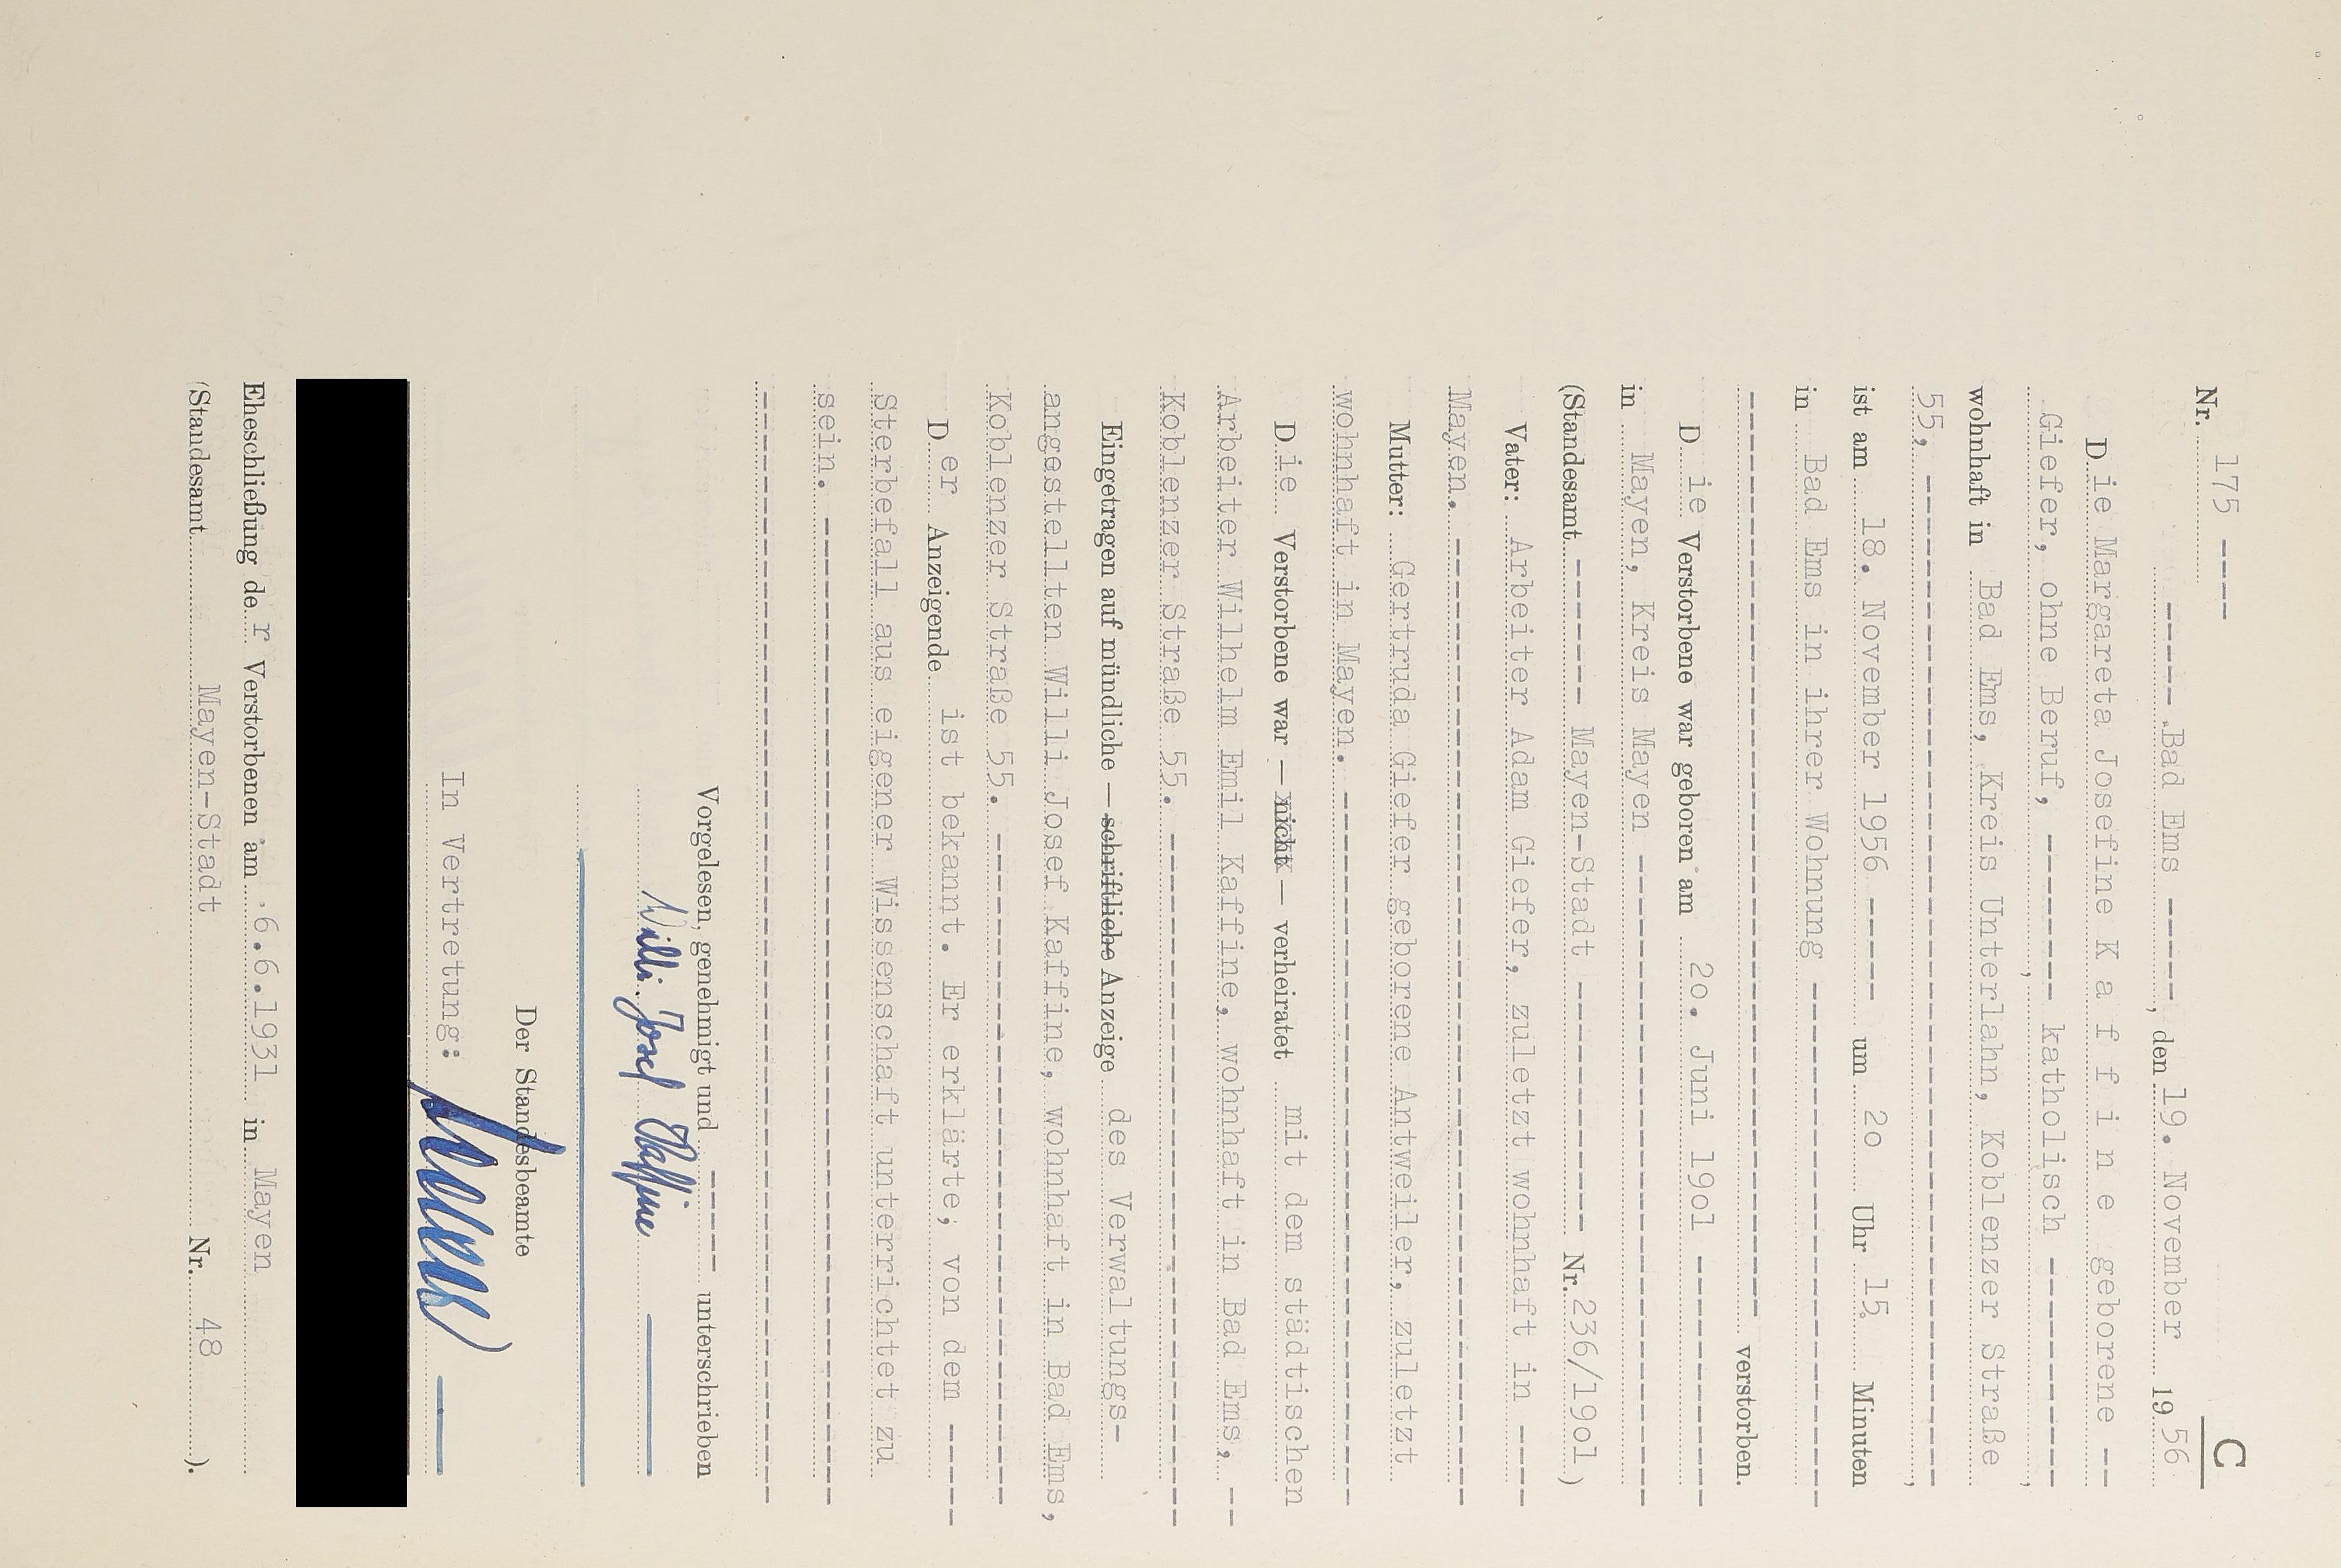 C
Nr. 175 ----
----- Bad Ems -----, den 19. November 1956
Die Margareta Josefine K a f f i n e geborene --
Giefer, ohne Beruf, -------- katholisch -----------,
wohnhaft in Bad Ems, Kreis Unterlahn, Koblenzer Straße
55, ----------------------------------------------,
ist am 18. November 1956 ----- um 2o Uhr 15 Minuten
in Bad Ems in ihrer Wohnung -------------------------
---------------------------------------------- verstorben.
Die Verstorbene war geboren am 2o. Juni 19o1 -----------
in Mayen, Kreis Mayen -------------------------------
(Standesamt ------- Mayen-Stadt ------------ Nr. 236/19o1)
Vater: Arbeiter Adam Giefer, zuletzt wohnhaft in ----
Mayen. ----------------------------------------------
Mutter: Gertruda Giefer geborene Antweiler, zuletzt
wohnhaft in Mayen. ----------------------------------
Die Verstorbene war — nicht — verheiratet mit dem städtischen
Arbeiter Wilhelm Emil Kaffine, wohnhaft in Bad Ems, --
Koblenzer Straße 55. --------------------------------
Eingetragen auf mündliche — schriftliche Anzeige des Verwaltungs-
angestellten Willi Josef Kaffine, wohnhaft in Bad Ems,
Koblenzer Straße 55. --------------------------------
Der Anzeigende ist bekannt. Er erklärte; von dem -----
Sterbefall aus eigener Wissenschaft unterrichtet zu
sein. -----------------------------------------------
-----------------------------------------------------
Vorgelesen, genehmigt und ----- unterschrieben
Willi Josef Kaffine
Der Standesbeamte
In Vertretung:
Eheschließung der Verstorbenen am 6.6.1931 in Mayen
(Standesamt Mayen-Stadt Nr. 48 ).